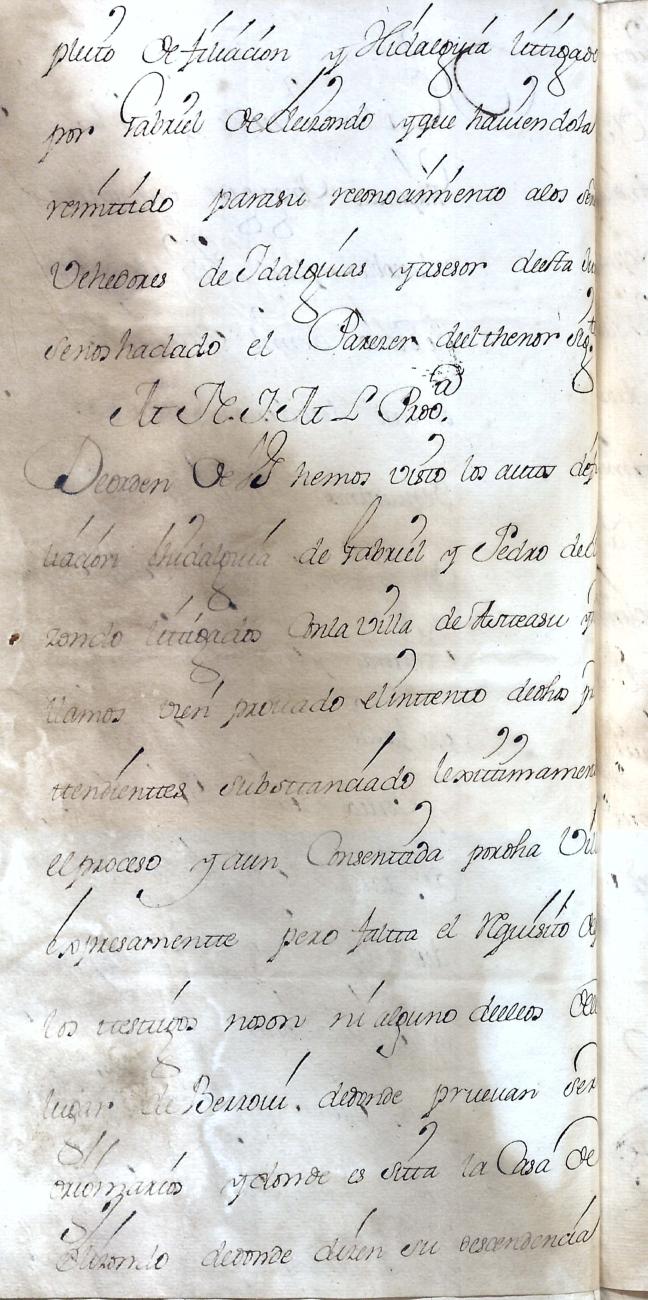 pleito de filiacion y Hidalguia littigado
por Gabriel de Elizondo y que haviendola
remittido parasu reconocimiento alos señ
Vehedores de Idalguias y asesor deesta
senoshadado el Parezer deelthenor sig.te
M. N. J. M. L. Prov.a
Deorden de VS hemos visto los autos defi
liacion ehidalguia de Gabriel y Pedro de
zondo littigados Conla Villa de Asteasu y
llamos vien provado elinttento dedhos p
ttendienttes substtanciado lexittimamen
el proceso y aun Consentida pordha Vill
expresamentte pero faltta el requisito de
los testigos noson ni alguno deellos del
lugar de Berrovi. dedonde pruevan ser
orixinarios y donde es sitta la Casa de
Elizondo dedonde dizen su descendencia